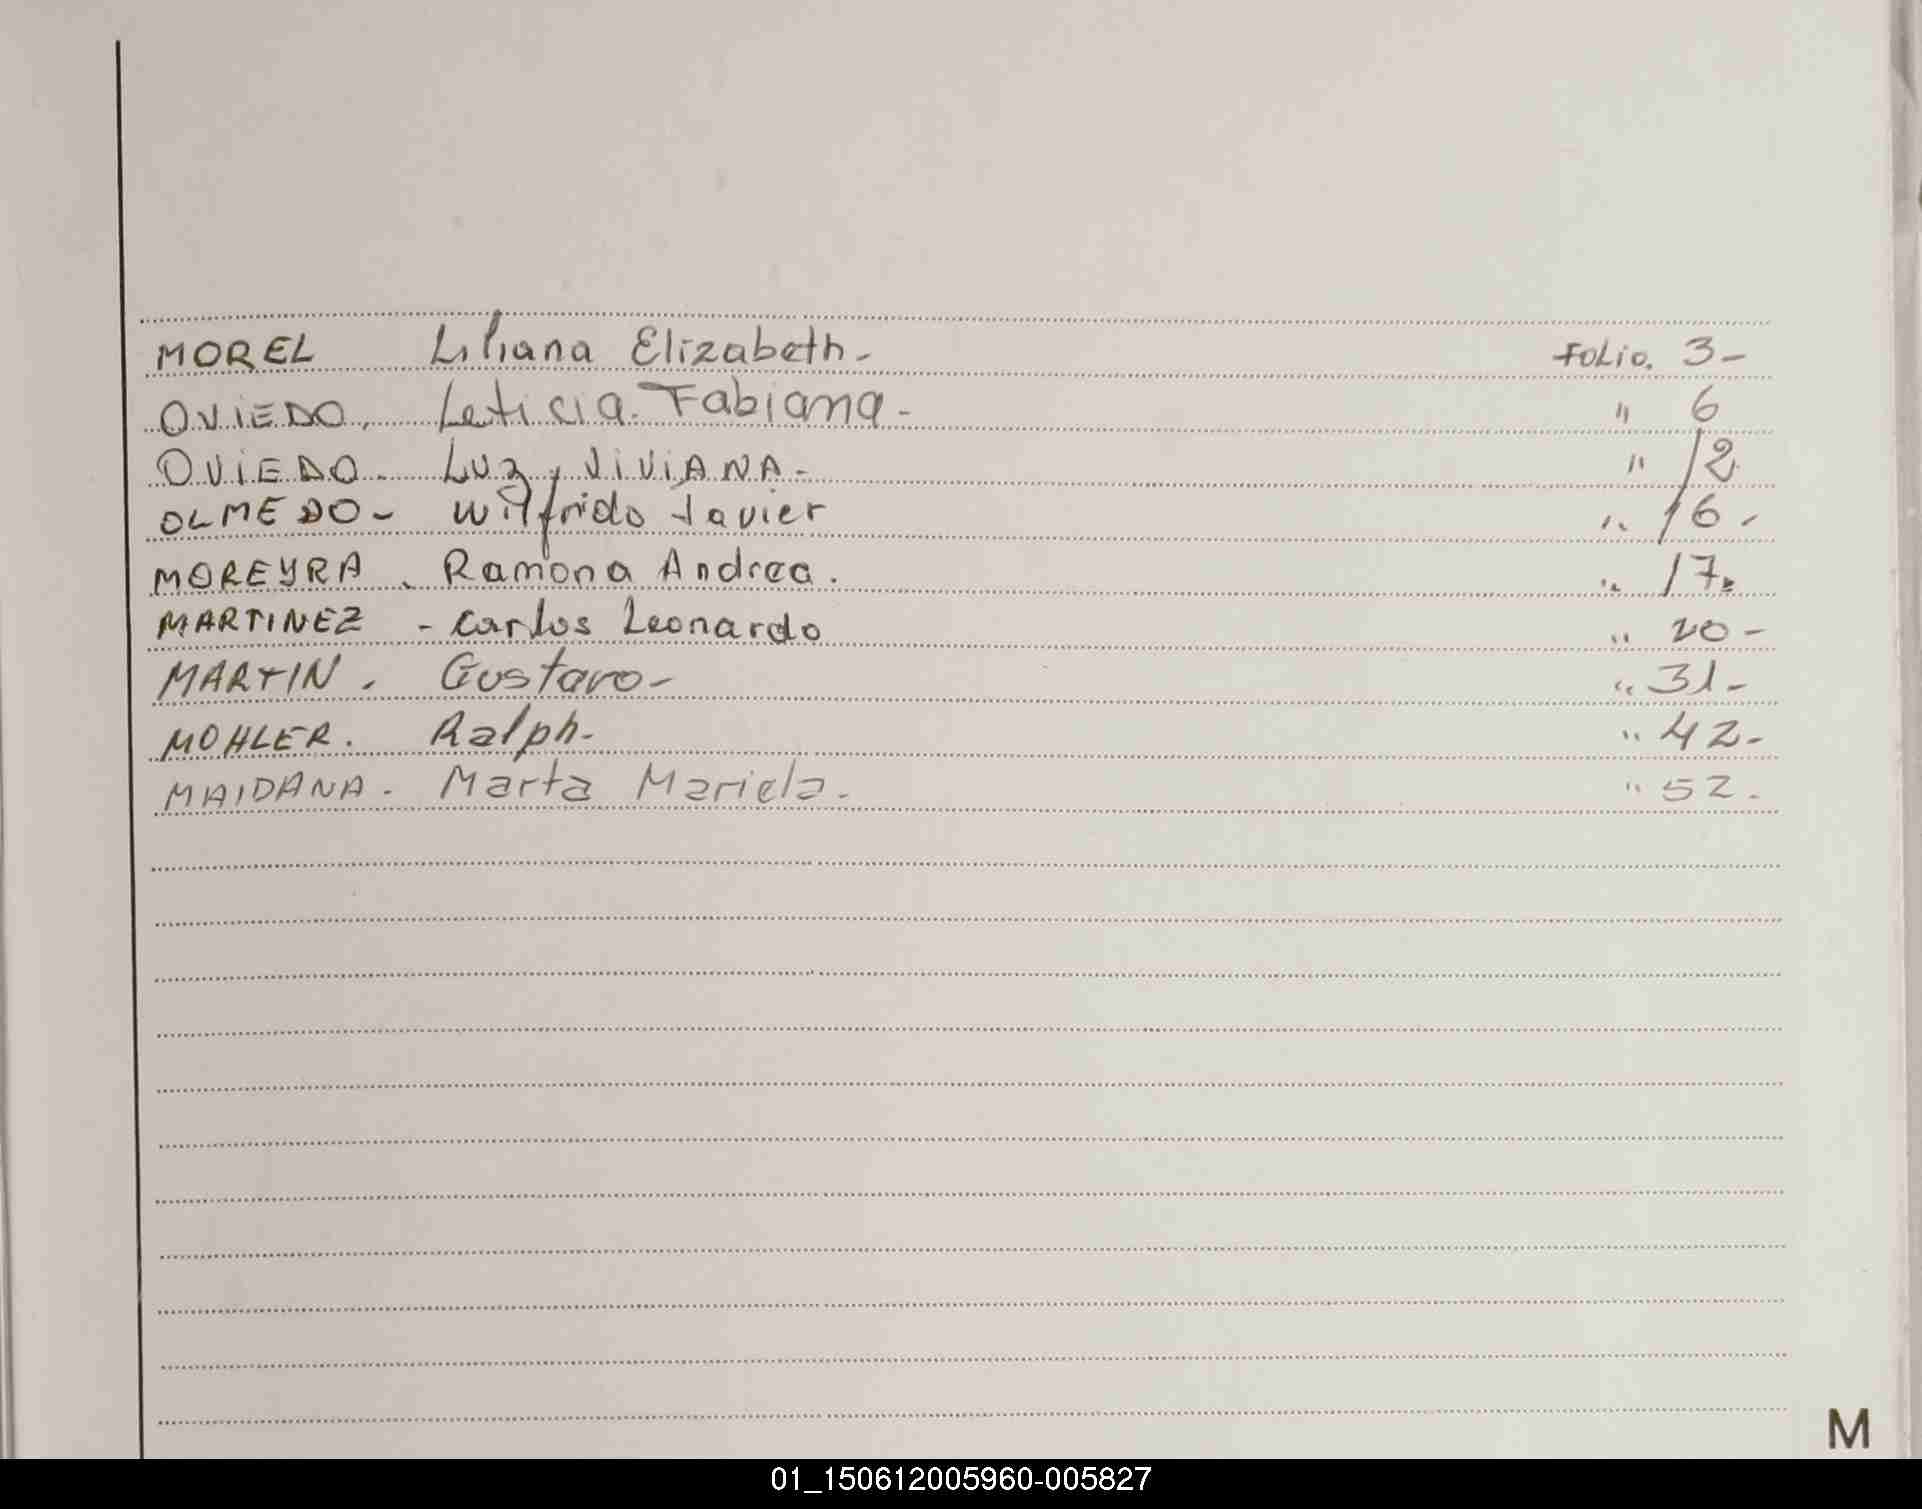 MOREL Liliana Elizabeth- FOLIO. 3-
OVIEDO. Leticia. Fabiana- " 6
OVIEDO- Luz, VIVIANA- " 12
OLMEDO- Wilfrido Javier " 16-
MOREYRA. Ramona Andrea. " 17.
MARTINEZ - Carlos Leonardo " 20-
MARTIN. Gustavo- " 31-
MOHLER. Ralph- " 42-
MAIDANA- Marta Mariela- " 52.
M
01_150612005960-005827